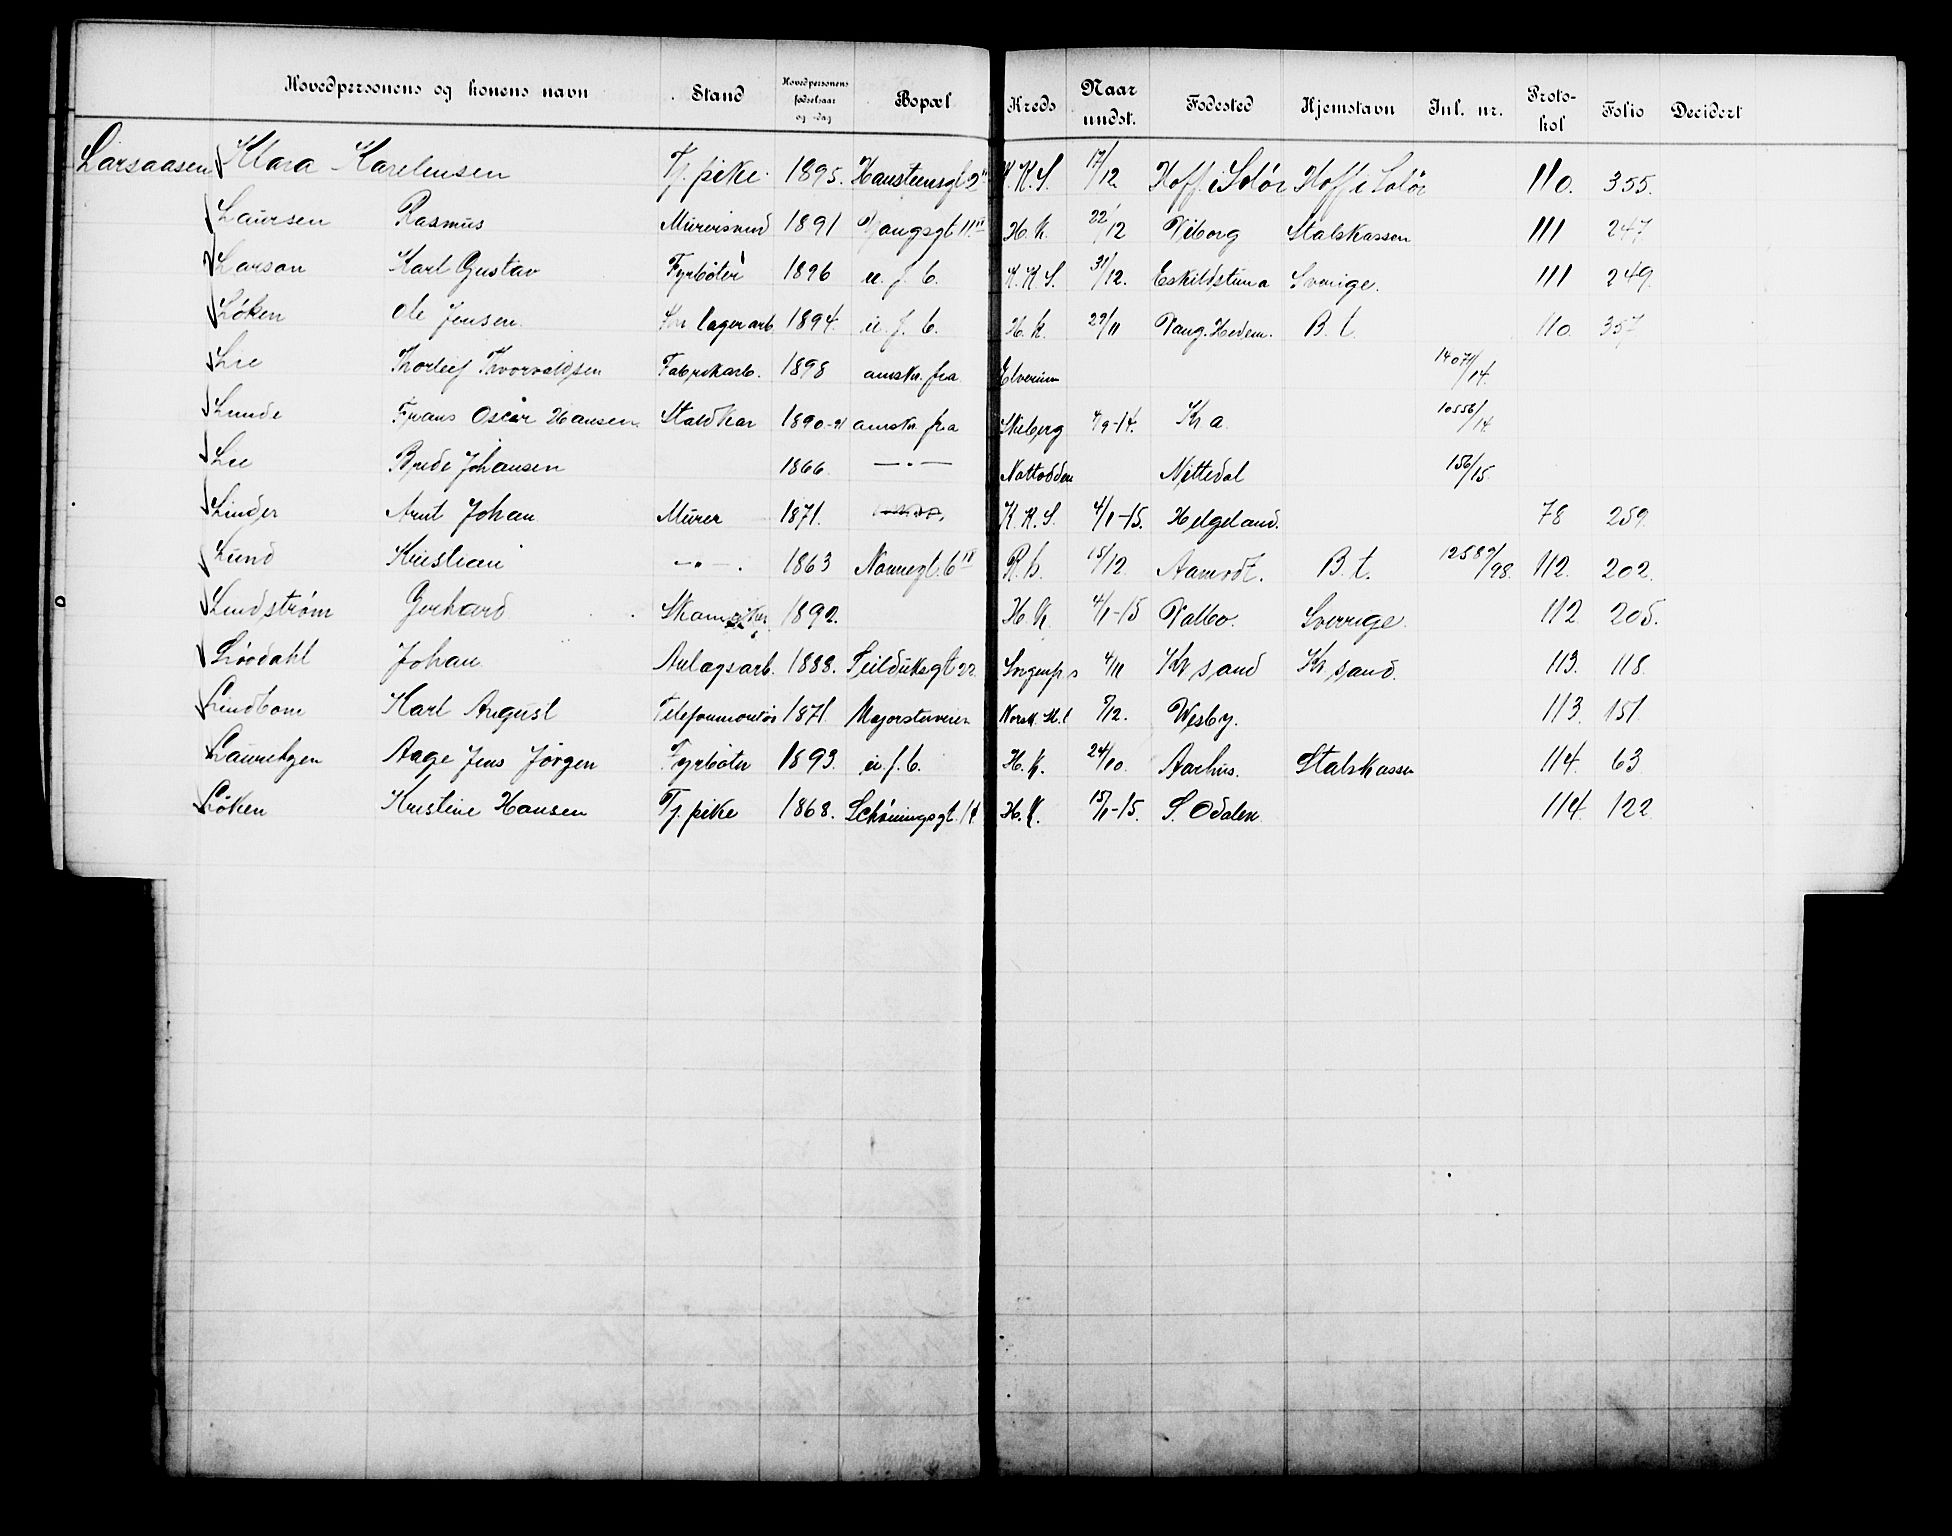 Hovedpersonens og konens navn Stand Hovedpersonens fødselsaar og -dag Bopæl Kreds Naar undst. Fødested Hjemstavn Inl. nr. Protokol Folio Decidert
Larsaasen Klara Karelensen Tj. pike. 1895. K.K.S. 17/12. Hoff i Solør Hoff i Solør 110. 355.
Laursen Rasmus Mursvend 1891 H.K. 22/12 Viborg Statskassen 111 247
Larson Karl Gustav Fyrbøter 1896 u. f. b. K.K.S. 31/12. Eskildstuna Sverige. 111 249.
Løken Ole Jensen. lagerarb. 1894. u. f. b. H.K. 29/11 Vang. Hedem. B. t. 110. 357
Lie Thorleif Thorvaldsen Fabrikarb. 1898 amskr. fra Elverum 14071/14.
Lunde Frans Oscar Hansen Staldkar 1890-91 amskr. fra Skeberg 4/9-14. Kr a. 10556/14
Lie Brede Johansen 1866. —„— Nottodden Nittedal 156/15.
Linder Arnt Johan Murer 1871. K.K.S. 4/1-15. Helgeland. 78 259.
Lund Kristian —„—. 1863 Nonnegt. 6 II R.h. 15/12 Aamodt. B. t. 1258/98. 112. 202.
Lindstrøm Gerhard 1892. H.K. 4/1-15 Valbo. Sverrige. 112 205.
Lövdahl Johan Anlagsarb. 1888. Seilduksgt 22 4/11 Kr sand Kr sand. 113. 118.
Lindbom Karl August Telefonmontør 1871. Majorstuveien 8/12. Wesby. 113. 151.
Lauretzen Aage Jens Jørgen Fyrbøter 1893. u. f. b. H.K. 24/10. Aarhus. Statskassen 114. 63
Løken Kristine Hansen Tj. pike 1868. Schøningsgt. 14 H.K. 15/1-15. S. Odalen 114. 122.